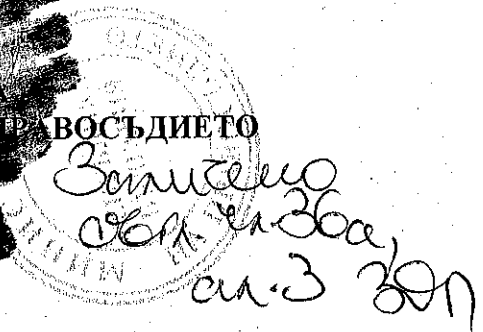 ПРАВОСЪДИЕТО
Заличено
чл.36а,
ал.3 ЗОП